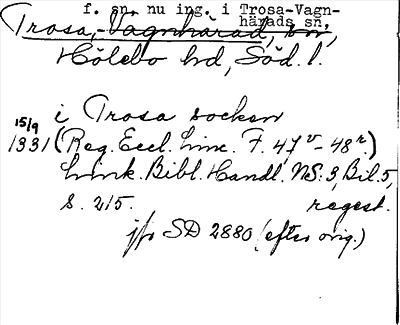 f. sn, nu ing. i Trosa-Vagn-
härads sn,
Trosa,-Vagnhärad, sn,
Hölebo hd, Söd. l.
i Trosa socken
15/9
1331 (Reg. Eccl. Linc. F. 47v-48r.)
Link. Bibl. Handl. NS: 3, Bil. 5,
s. 215. regest.
jfr SD 2880 (efter orig.)